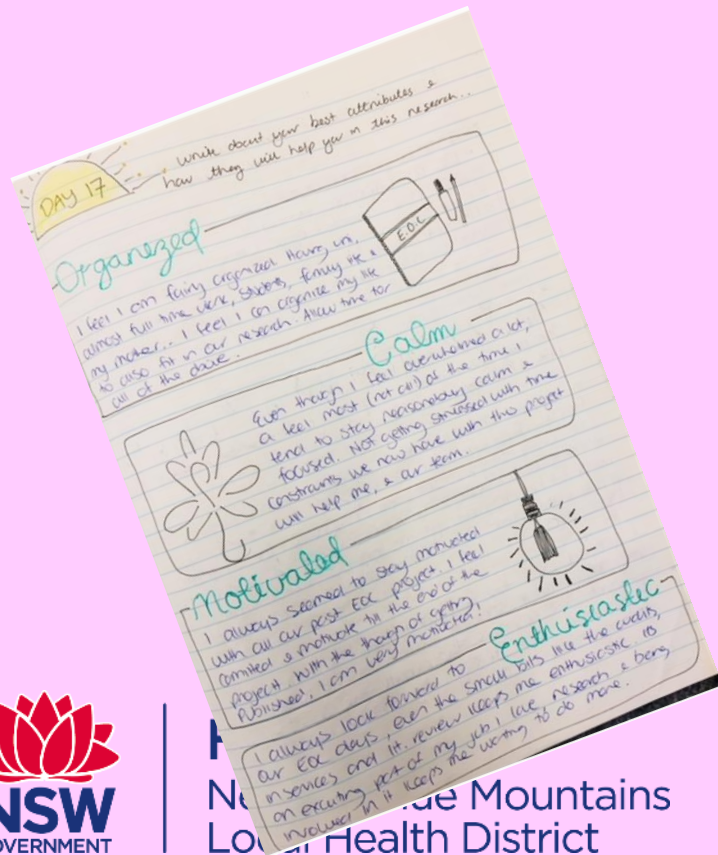 DAY 17
write about your best attributes &
how they will help you in this research...
Organized
E.O.L
I feel I am fairly organized. Having un,
almost full time work, students, family life &
my mother... I feel I can organize my life
to also fit in our research. Allow time for
all of the above.
Calm
Even though I feel overwhelmed a lot,
a feel most (not all) of the time I
tend to stay reasonably calm &
focused. Not getting stressed with time
constraints we now have with this project
will help me, & our team.
Motivated
I always seemed to stay motivated
with all our past EOL project. I feel
comited & motivate till the end of the
project. With the though of getting
Published, I am very motivated!
Enthusiastic
I always look forward to
our EOL days, even the small bits like the audits,
inservices and lit. review keeps me enthusiastic. Is
an exciting part of my job I love, research & being
involved in it keeps me wanting to do more.
NSW
GOVERNMENT
Mountains
Local Health District